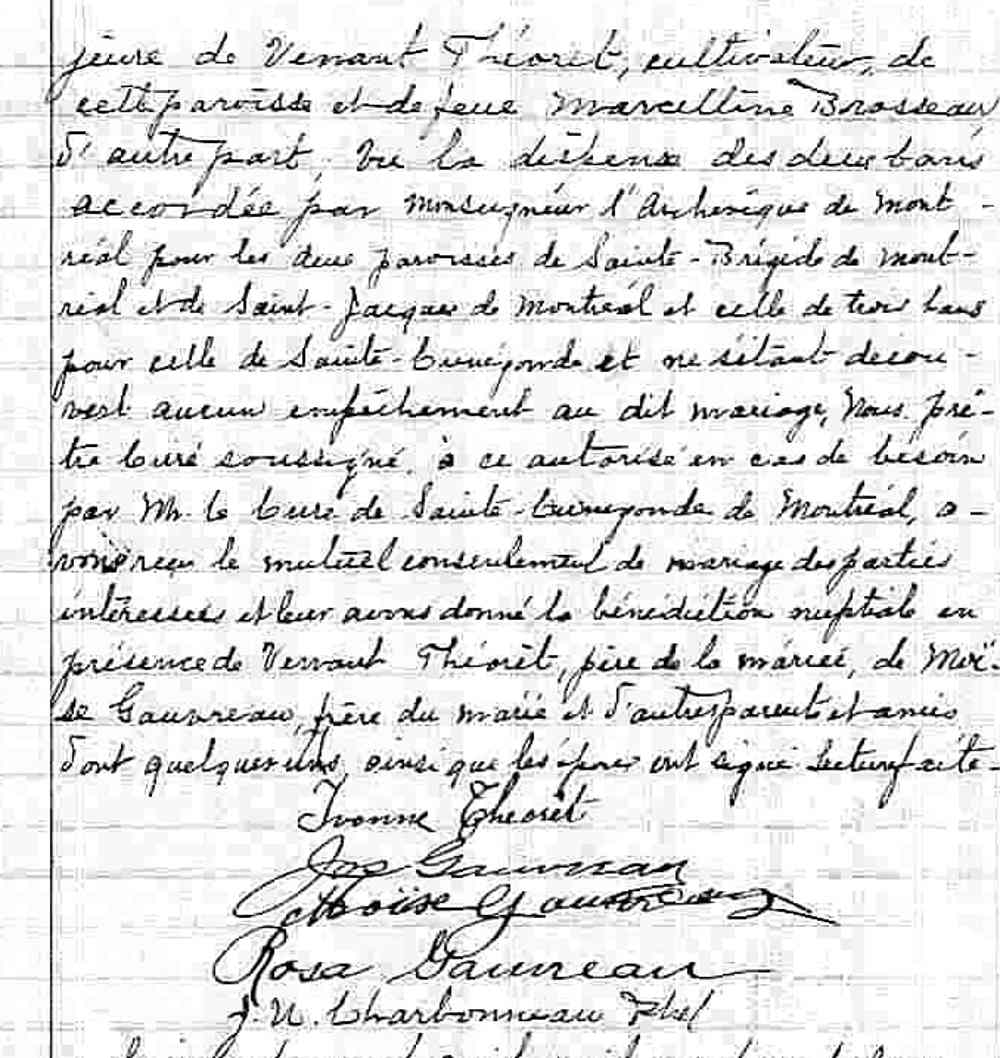 jeure de Venant Théorêt, cultivateur, de
cette paroisse et de feue Marcelline Brosseau
d'autre part, Vu la dispense des deux bans
accordée par Monseigneur l'Archevêque de Mont-
réal pour les deux paroisses de Sainte-Brigide de Mont-
réal et de Saint-Jacques de Montréal et celle de trois bans
pour celle de Sainte-Cunégonde et ne s'étant décou-
vert aucun empêchement au dit mariage, Nous, prê-
tre Curé soussigné, à ce autorisé en cas de besoin
par Mr. le Curé de Sainte-Cunégonde de Montréal, a-
vons reçu le mutuel consentement de mariage des parties
intéressées et leur avons donné la bénédiction nuptiale en
présence de Venant Théorêt, père de la mariée, de Moï-
se Gauvreau, frère du marié et d'autres parent et amis
dont quelques uns, ainsi que les époux ont signé. Lecture faite-
Ivonne Theorêt
Jos Gauvreau
Moïse Gauvreau
Rosa Gauvreau
J. U. Charbonneau